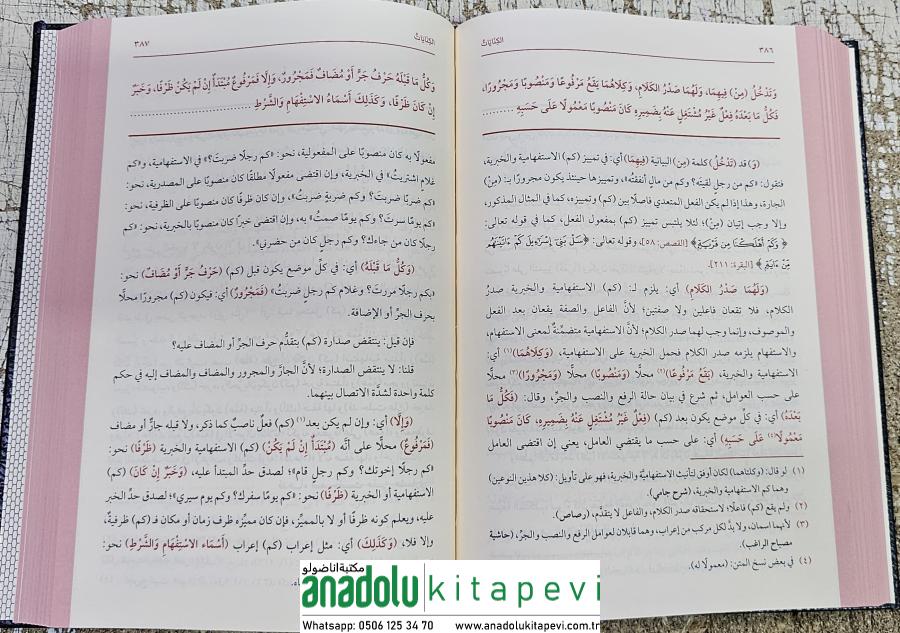 ٣٨٦
الكنايات
وَتَدْخُلُ (مِنْ) فِيهِمَا، وَلَهُمَا صَدْرُ الكَلَامِ، وَكِلَاهُمَا يَقَعُ مَرْفُوعًا وَمَنْصُوبًا وَمَجْرُورًا،
فَكُلُّ مَا بَعْدَهُ فِعْلٌ غَيْرُ مُشْتَغِلٍ عَنْهُ بِضَمِيرِهِ كَانَ مَنْصُوبًا مَعْمُولًا عَلَى حَسَبِهِ .........
(وَ) قد (تَدْخُلُ) كلمة (مِن) البيانية (فِيهِمَا) أي: في تمييز (كم) الاستفهامية والخبرية،
فتقول: «كم من رجلٍ لقيتَه؟ وكم من مالٍ أنفقتُه»، وتمييزها حينئذ يكون مجرورًا بـ: (مِنْ)
الجارة، وهذا إذا لم يكن الفعل المتعدي فاصلًا بين (كم) وتمييزه، كما في المثال المذكور،
وإلا وجب إتيان (مِنْ)؛ لئلا يلتبس تمييز (كم) بمفعول الفعل، كما في قوله تعالى:
﴿وَكَمْ أَهْلَكْنَا مِن قَرْيَةٍ﴾ [القصص: ٥٨]، وقوله تعالى: ﴿سَلْ بَنِي إِسْرَائِيلَ كَمْ آتَيْنَاهُم
مِّنْ آيَةٍ﴾ [البقرة: ٢١١].
(وَلَهُمَا صَدْرُ الكَلَامِ) أي: يلزم لـ: (كم) الاستفهامية والخبرية صدرُ
الكلام، فلا تقعان فاعلين ولا صفتين؛ لأنَّ الفاعل والصفة يقعان بعد الفعل
والموصوف، وإنما وجب لهما صدر الكلام؛ لأنَّ الاستفهامية متضمِّنةٌ لمعنى الاستفهام،
والاستفهام يلزمه صدر الكلام فحمل الخبرية على الاستفهامية، (وَكِلَاهُمَا)(١) أي:
الاستفهامية والخبرية، (يَقَعُ مَرْفُوعًا)(٢) محلًا (وَمَنْصُوبًا) محلًا (وَمَجْرُورًا)(٣) محلًا
على حسب العوامل، ثم شرع في بيان حالة الرفع والنصب والجرِّ، وقال: (فَكُلُّ مَا
بَعْدَهُ) أي: في كلِّ موضع يكون بعد (كم) (فِعْلٌ غَيْرُ مُشْتَغِلٍ عَنْهُ بِضَمِيرِهِ، كَانَ مَنْصُوبًا
مَعْمُولًا(٤) عَلَى حَسَبِهِ) أي: على حسب ما يقتضي العامل، يعني إن اقتضى العامل
(١) لو قال: (وكلتاهما) لكان أوفق لتأنيث الاستفهاميَّة والخبرية، فهو على تأويل: (كلا هذين النوعين)
وهما كم الاستفهامية والخبرية، (شرح جامي).
(٢) ولم يقع (كم) فاعلًا؛ لاستحقاقه صدر الكلام، والفاعل لا يتقدَّم، رصاص).
(٣) لأنهما اسمان، ولا بدَّ لكل مركب من إعراب، وهما قابلان لعوامل الرفع والنصب والجرِّ، (حاشية
مصباح الراغب).
(٤) في بعض نسخ المتن: (معمولًا له).
الكنايات
٣٨٧
وَكُلُّ مَا قَبْلَهُ حَرْفُ جَرٍّ أَوْ مُضَافٌ فَمَجْرُورٌ، وَإِلَّا فَمَرْفُوعٌ مُبْتَدَأٌ إِنْ لَمْ يَكُنْ ظَرْفًا، وَخَبَرٌ
إِنْ كَانَ ظَرْفًا، وَكَذَلِكَ أَسْمَاءُ الاسْتِفْهَامِ وَالشَّرْطِ ..............................
مفعولًا به كان منصوبًا على المفعولية، نحو: «كم رجلًا ضربتَ؟» في الاستفهامية، و«كم
غلامٍ اشتريتُ» في الخبرية، وإن اقتضى مفعولًا مطلقًا كان منصوبًا على المصدرية، نحو:
«كم ضربًا ضربتَ؟ وكم ضربةٍ ضربتُ»، وإن كان ظرفًا كان منصوبًا على الظرفية، نحو:
«كم يومًا سرتَ؟ وكم يومًا صمتُ» به، وإن اقتضى خبرًا كان منصوبًا بالخبرية، نحو: «كم
رجلًا كان من جاءك؟ وكم رجلٍ كان من حضرني».
(وَكُلُّ مَا قَبْلَهُ) أي: في كلِّ موضع يكون قبل (كم) (حَرْفُ جَرٍّ أَوْ مُضَافٌ) نحو:
«بكم رجلًا مررتَ؟ وغلام كم رجلٍ ضربتُ» (فَمَجْرُورٌ) أي: فيكون (كم) مجرورًا محلًا
بحرف الجرِّ أو الإضافة.
فإن قيل: ينتقض صدارة (كم) بتقدُّم حرف الجرِّ أو المضاف عليه؟
قلنا: لا ينتقض الصدارة؛ لأنَّ الجارَّ والمجرور والمضاف والمضاف إليه في حكم
كلمة واحدة لشدَّة الاتصال بينهما.
(وَإِلَّا) أي: وإن لم يكن بعد(١) (كم) فعلٌ ناصبٌ كما ذكر، ولا قبله جارٌّ أو مضاف
(فَمَرْفُوعٌ) محلًا على أنَّه (مُبْتَدَأٌ إِنْ لَمْ يَكُنْ) (كم) الاستفهامية والخبرية (ظَرْفًا) نحو:
«كم رجلًا إخوتك؟ وكم رجلٍ قام»؛ لصدق حدِّ المبتدأ عليه، (وَخَبَرٌ إِنْ كَانَ) (كم)
الاستفهامية أو الخبرية (ظَرْفًا) نحو: «كم يومًا سفرك؟ وكم يومٍ سيري»؛ لصدق حدِّ الخبر
عليه، ويعلم كونه ظرفًا أو لا بالمميِّز، فإن كان مميِّزه ظرف زمان أو مكان فـ(كم) ظرفيةٌ،
وإلا فلا، (وَكَذَلِكَ) أي: مثل إعراب (كم) إعراب (أَسْمَاء الاسْتِفْهَامِ وَالشَّرْطِ) نحو:
مكتبة اناضولو
anadolu kitapevi
Whatsapp: 0506 125 34 70 www.anadolukitapevi.com.tr